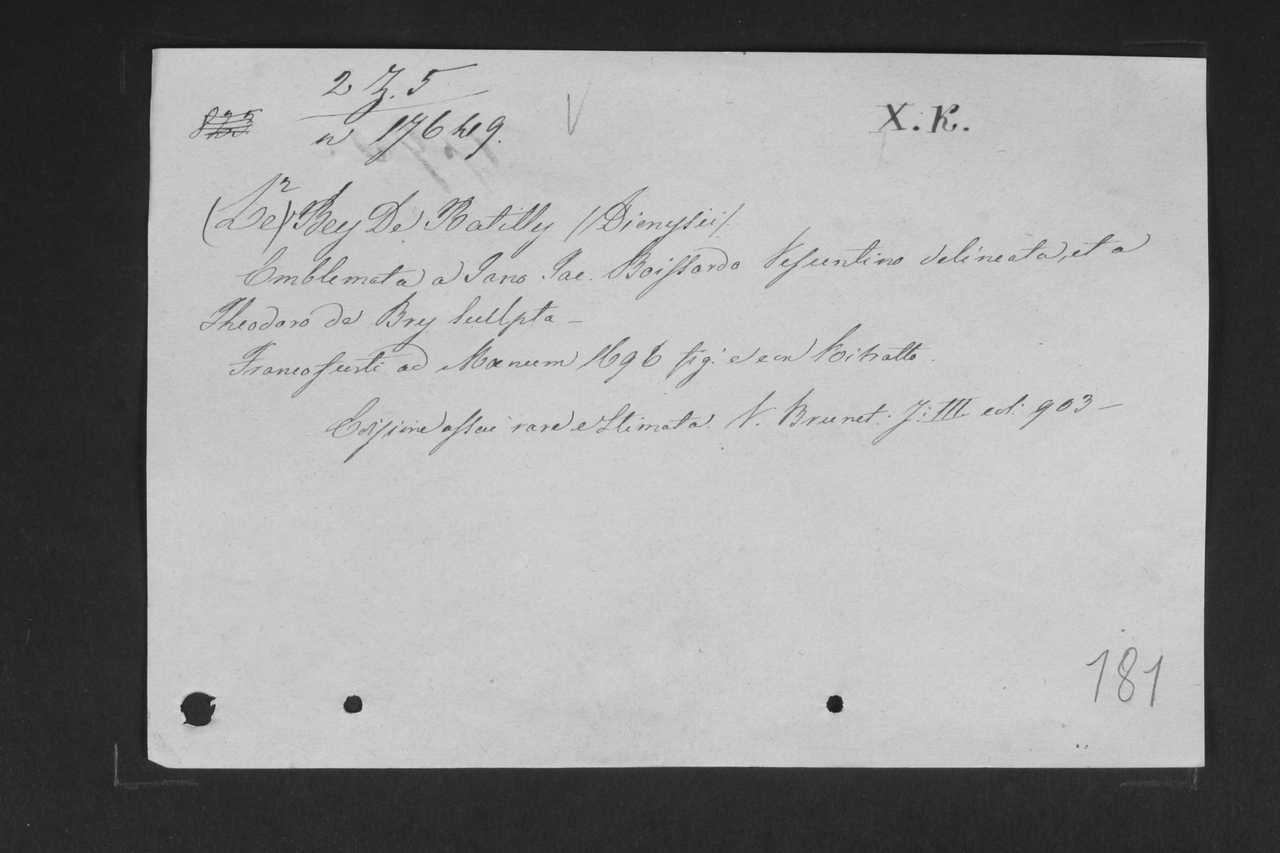 2 Z. 5
n 17649.
X. K.
(Le)² Bey De Batilly (Dionysii)
Emblemata a Jano Jac. Boissardo Vesuntino delineata, et a
Theodoro de Bry Scullpta –
Francofurti ad Mœnum 1696 fig: e con Ritratto.
Edizione assai rara e Stimata. V. Brunet. T: III col: 903 –
181